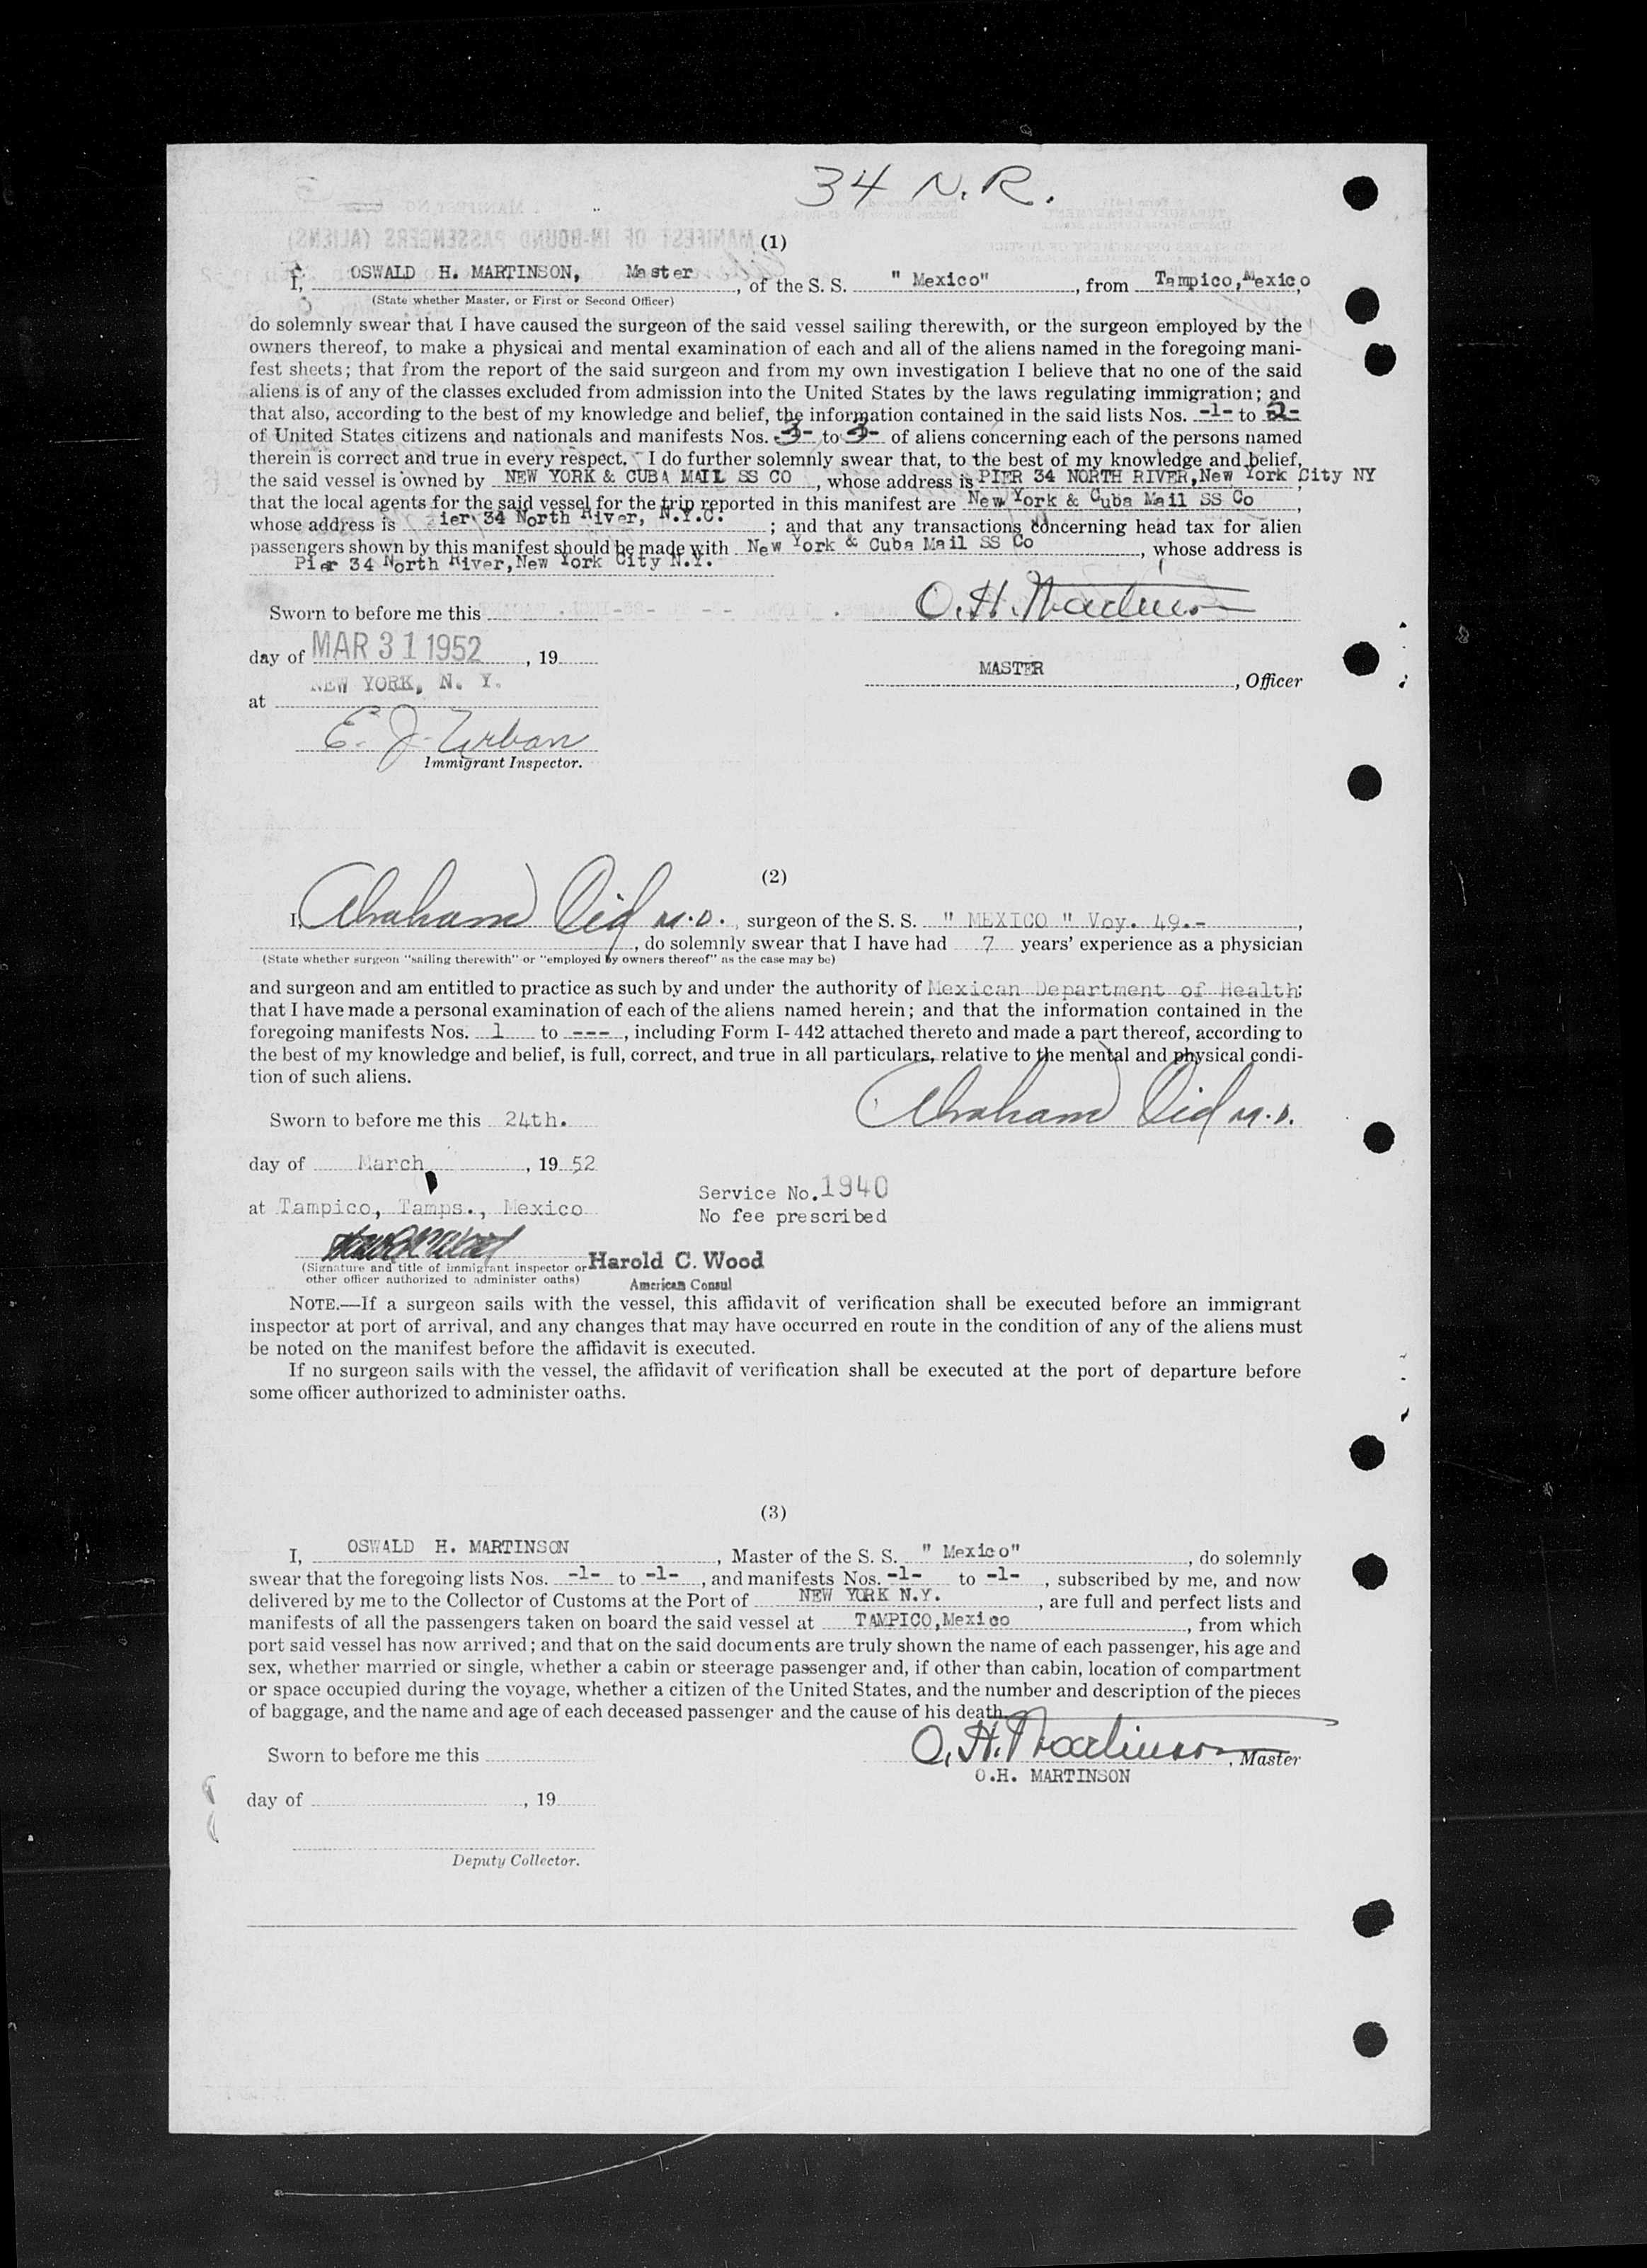 34 N. R.
(1)
I, OSWALD H. MARTINSON, Master, of the S. S. " Mexico", from Tampico,Mexico
(State whether Master, or First or Second Officer)
do solemnly swear that I have caused the surgeon of the said vessel sailing therewith, or the surgeon employed by the
owners thereof, to make a physical and mental examination of each and all of the aliens named in the foregoing mani-
fest sheets; that from the report of the said surgeon and from my own investigation I believe that no one of the said
aliens is of any of the classes excluded from admission into the United States by the laws regulating immigration; and
that also, according to the best of my knowledge and belief, the information contained in the said lists Nos. -1- to -2-
of United States citizens and nationals and manifests Nos. -3- to -3- of aliens concerning each of the persons named
therein is correct and true in every respect. I do further solemnly swear that, to the best of my knowledge and belief,
the said vessel is owned by NEW YORK & CUBA MAIL SS CO, whose address is PIER 34 NORTH RIVER,New York City NY,
that the local agents for the said vessel for the trip reported in this manifest are New York & Cuba Mail SS Co,
whose address is Pier 34 North River, N.Y.C.; and that any transactions concerning head tax for alien
passengers shown by this manifest should be made with New York & Cuba Mail SS Co, whose address is
Pier 34 North River,New York City N.Y.
Sworn to before me this
O. H. Martinson
day of MAR 31 1952, 19
MASTER, Officer
at NEW YORK, N. Y.
E. J. Urban
Immigrant Inspector.
(2)
I, Abraham M.D., surgeon of the S. S. " MEXICO " Voy. 49.-,
, do solemnly swear that I have had 7 years' experience as a physician
(State whether surgeon "sailing therewith" or "employed by owners thereof" as the case may be)
and surgeon and am entitled to practice as such by and under the authority of Mexican Department of Health;
that I have made a personal examination of each of the aliens named herein; and that the information contained in the
foregoing manifests Nos. 1 to ---, including Form I-442 attached thereto and made a part thereof, according to
the best of my knowledge and belief, is full, correct, and true in all particulars, relative to the mental and physical condi-
tion of such aliens.
Abraham M.D.
Sworn to before me this 24th.
day of March, 19 52
Service No. 1940
at Tampico, Tamps., Mexico
No fee prescribed
(Signature and title of immigrant inspector or
other officer authorized to administer oaths)
Harold C. Wood
American Consul
NOTE.—If a surgeon sails with the vessel, this affidavit of verification shall be executed before an immigrant
inspector at port of arrival, and any changes that may have occurred en route in the condition of any of the aliens must
be noted on the manifest before the affidavit is executed.
If no surgeon sails with the vessel, the affidavit of verification shall be executed at the port of departure before
some officer authorized to administer oaths.
(3)
I, OSWALD H. MARTINSON, Master of the S. S. " Mexico", do solemnly
swear that the foregoing lists Nos. -1- to -1-, and manifests Nos. -1- to -1-, subscribed by me, and now
delivered by me to the Collector of Customs at the Port of NEW YORK N.Y., are full and perfect lists and
manifests of all the passengers taken on board the said vessel at TAMPICO,Mexico, from which
port said vessel has now arrived; and that on the said documents are truly shown the name of each passenger, his age and
sex, whether married or single, whether a cabin or steerage passenger and, if other than cabin, location of compartment
or space occupied during the voyage, whether a citizen of the United States, and the number and description of the pieces
of baggage, and the name and age of each deceased passenger and the cause of his death.
O. H. Martinson, Master
Sworn to before me this
O.H. MARTINSON
day of , 19
Deputy Collector.